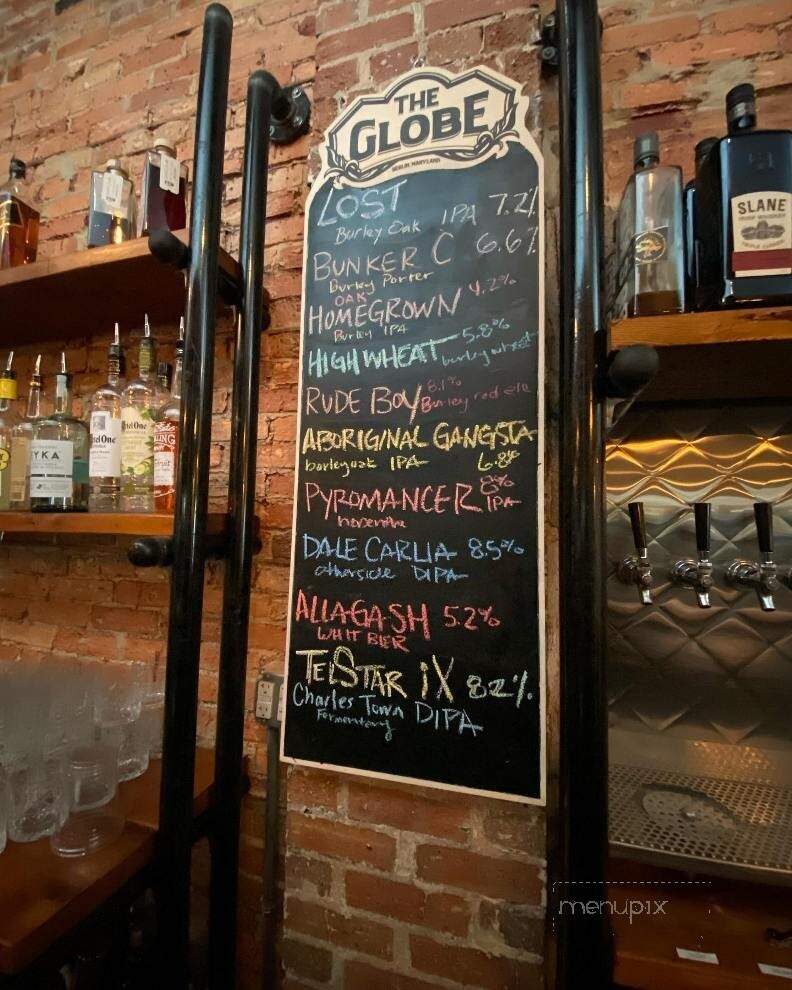 THE
GLOBE
BERLIN, MARYLAND
LOST 7.2%
Burley Oak IPA
BUNKER C 6.6%
Burley Porter
OAK
HOMEGROWN 4.2%
Burley IPA
HIGH WHEAT 5.8%
burley wheat
RUDE BOY 8.1%
Burley red ale
ABORIGINAL GANGSTA
burleyoak IPA 6.8%
PYROMANCER 8%
IPA
DALE CARLIA 8.5%
otherside DIPA
ALLAGASH 5.2%
WHIT BIER
TELSTAR iX 8.2%
Charles Town DIPA
Fermentory
SLANE
IRISH WHISKEY
TRIPLE CASKED
YKA
tel One
Ketel One
menupix